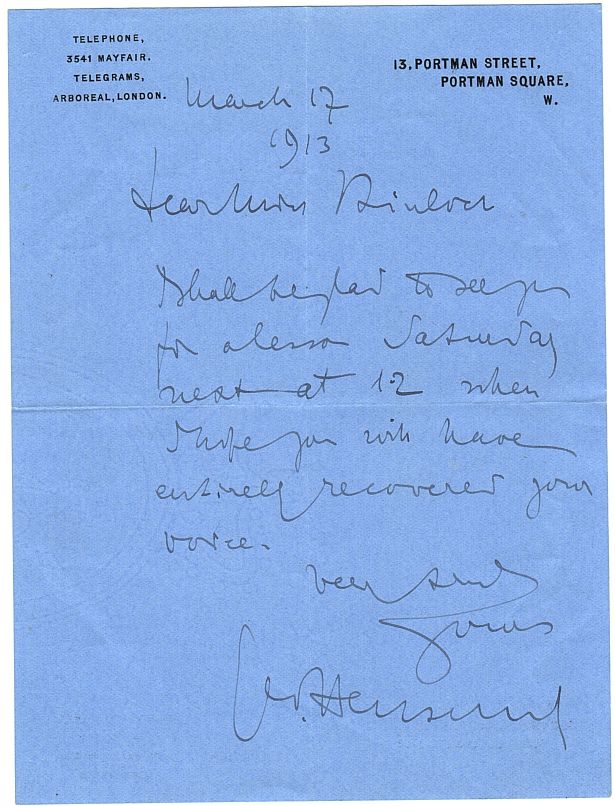 TELEPHONE,
3541 MAYFAIR.
TELEGRAMS,
ARBOREAL, LONDON.
13, PORTMAN STREET,
PORTMAN SQUARE,
W.
March 17
1913
Dear Miss
I shall be glad to see you
for a lesson Saturday
next at 12 when
I hope you will have
entirely recovered your
voice.
Very
Yours
G. Henschel